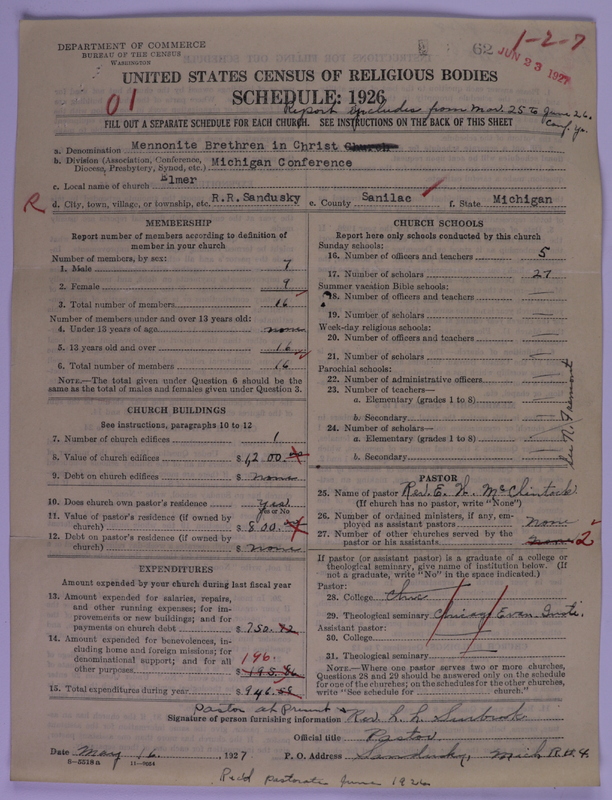 DEPARTMENT OF COMMERCE
BUREAU OF THE CENSUS
WASHINGTON
62
JUN 23 1927
1-2-7
UNITED STATES CENSUS OF RELIGIOUS BODIES
01
SCHEDULE: 1926
Report includes from Nov. 25 to June 26.
Conf. yr.
FILL OUT A SEPARATE SCHEDULE FOR EACH CHURCH. SEE INSTRUCTIONS ON THE BACK OF THIS SHEET
a. Denomination Mennonite Brethren in Christ Church
b. Division (Association, Conference, Diocese, Presbytery, Synod, etc.) Michigan Conference
c. Local name of church Elmer
R d. City, town, village, or township, etc. R.R. Sandusky e. County Sanilac f. State Michigan
MEMBERSHIP
Report number of members according to definition of
member in your church
Number of members, by sex:
1. Male 7
2. Female 9
3. Total number of members 16
Number of members under and over 13 years old:
4. Under 13 years of age none
5. 13 years old and over 16
6. Total number of members 16
NOTE.—The total given under Question 6 should be
same as the total of males and females given under Question 3.
CHURCH BUILDINGS
See instructions, paragraphs 10 to 12
7. Number of church edifices 1
8. Value of church edifices $ 1,200.
9. Debt on church edifices $ none
10. Does church own pastor's residence yes
Yes or No
11. Value of pastor's residence (if owned by
church) $ 800.
12. Debt on pastor's residence (if owned by
church) $ none
EXPENDITURES
Amount expended by your church during last fiscal year
13. Amount expended for salaries, repairs,
and other running expenses; for im-
provements or new buildings; and for
payments on church debt $ 750.82
14. Amount expended for benevolences, in-
cluding home and foreign missions; for
denominational support; and for all
other purposes 196.
$ 195.
15. Total expenditures during year $ 946.
CHURCH SCHOOLS
Report here only schools conducted by this church
Sunday schools:
16. Number of officers and teachers 5
17. Number of scholars 27
Summer vacation Bible schools:
18. Number of officers and teachers
19. Number of scholars
Week-day religious schools:
20. Number of officers and teachers
21. Number of scholars
Parochial schools:
22. Number of administrative officers
23. Number of teachers—
a. Elementary (grades 1 to 8)
b. Secondary
24. Number of scholars—
a. Elementary (grades 1 to 8)
b. Secondary
See N. Fremont
PASTOR
25. Name of pastor Rev. E. W. McClintock
(If church has no pastor, write "None")
26. Number of ordained ministers, if any, em-
ployed as assistant pastors none
27. Number of other churches served by the
pastor or his assistants none 2
If pastor (or assistant pastor) is a graduate of a college or
theological seminary, give name of institution below. (If
not a graduate, write "No" in the space indicated.)
Pastor:
28. College
29. Theological seminary Chicago Evan. Insti.
Assistant pastor:
30. College
31. Theological seminary
NOTE.—Where one pastor serves two or more churches,
Questions 28 and 29 should be answered only on the schedule
for one of the churches; on the schedules for the other churches,
write "See schedule for church."
Pastor at present
Signature of person furnishing information Rev. L. L. Surbrook
Official title Pastor
Date May 16, 1927 P. O. Address Sandusky, Mich R.D.4
8-5518a 11-8664
pastorate June 1926